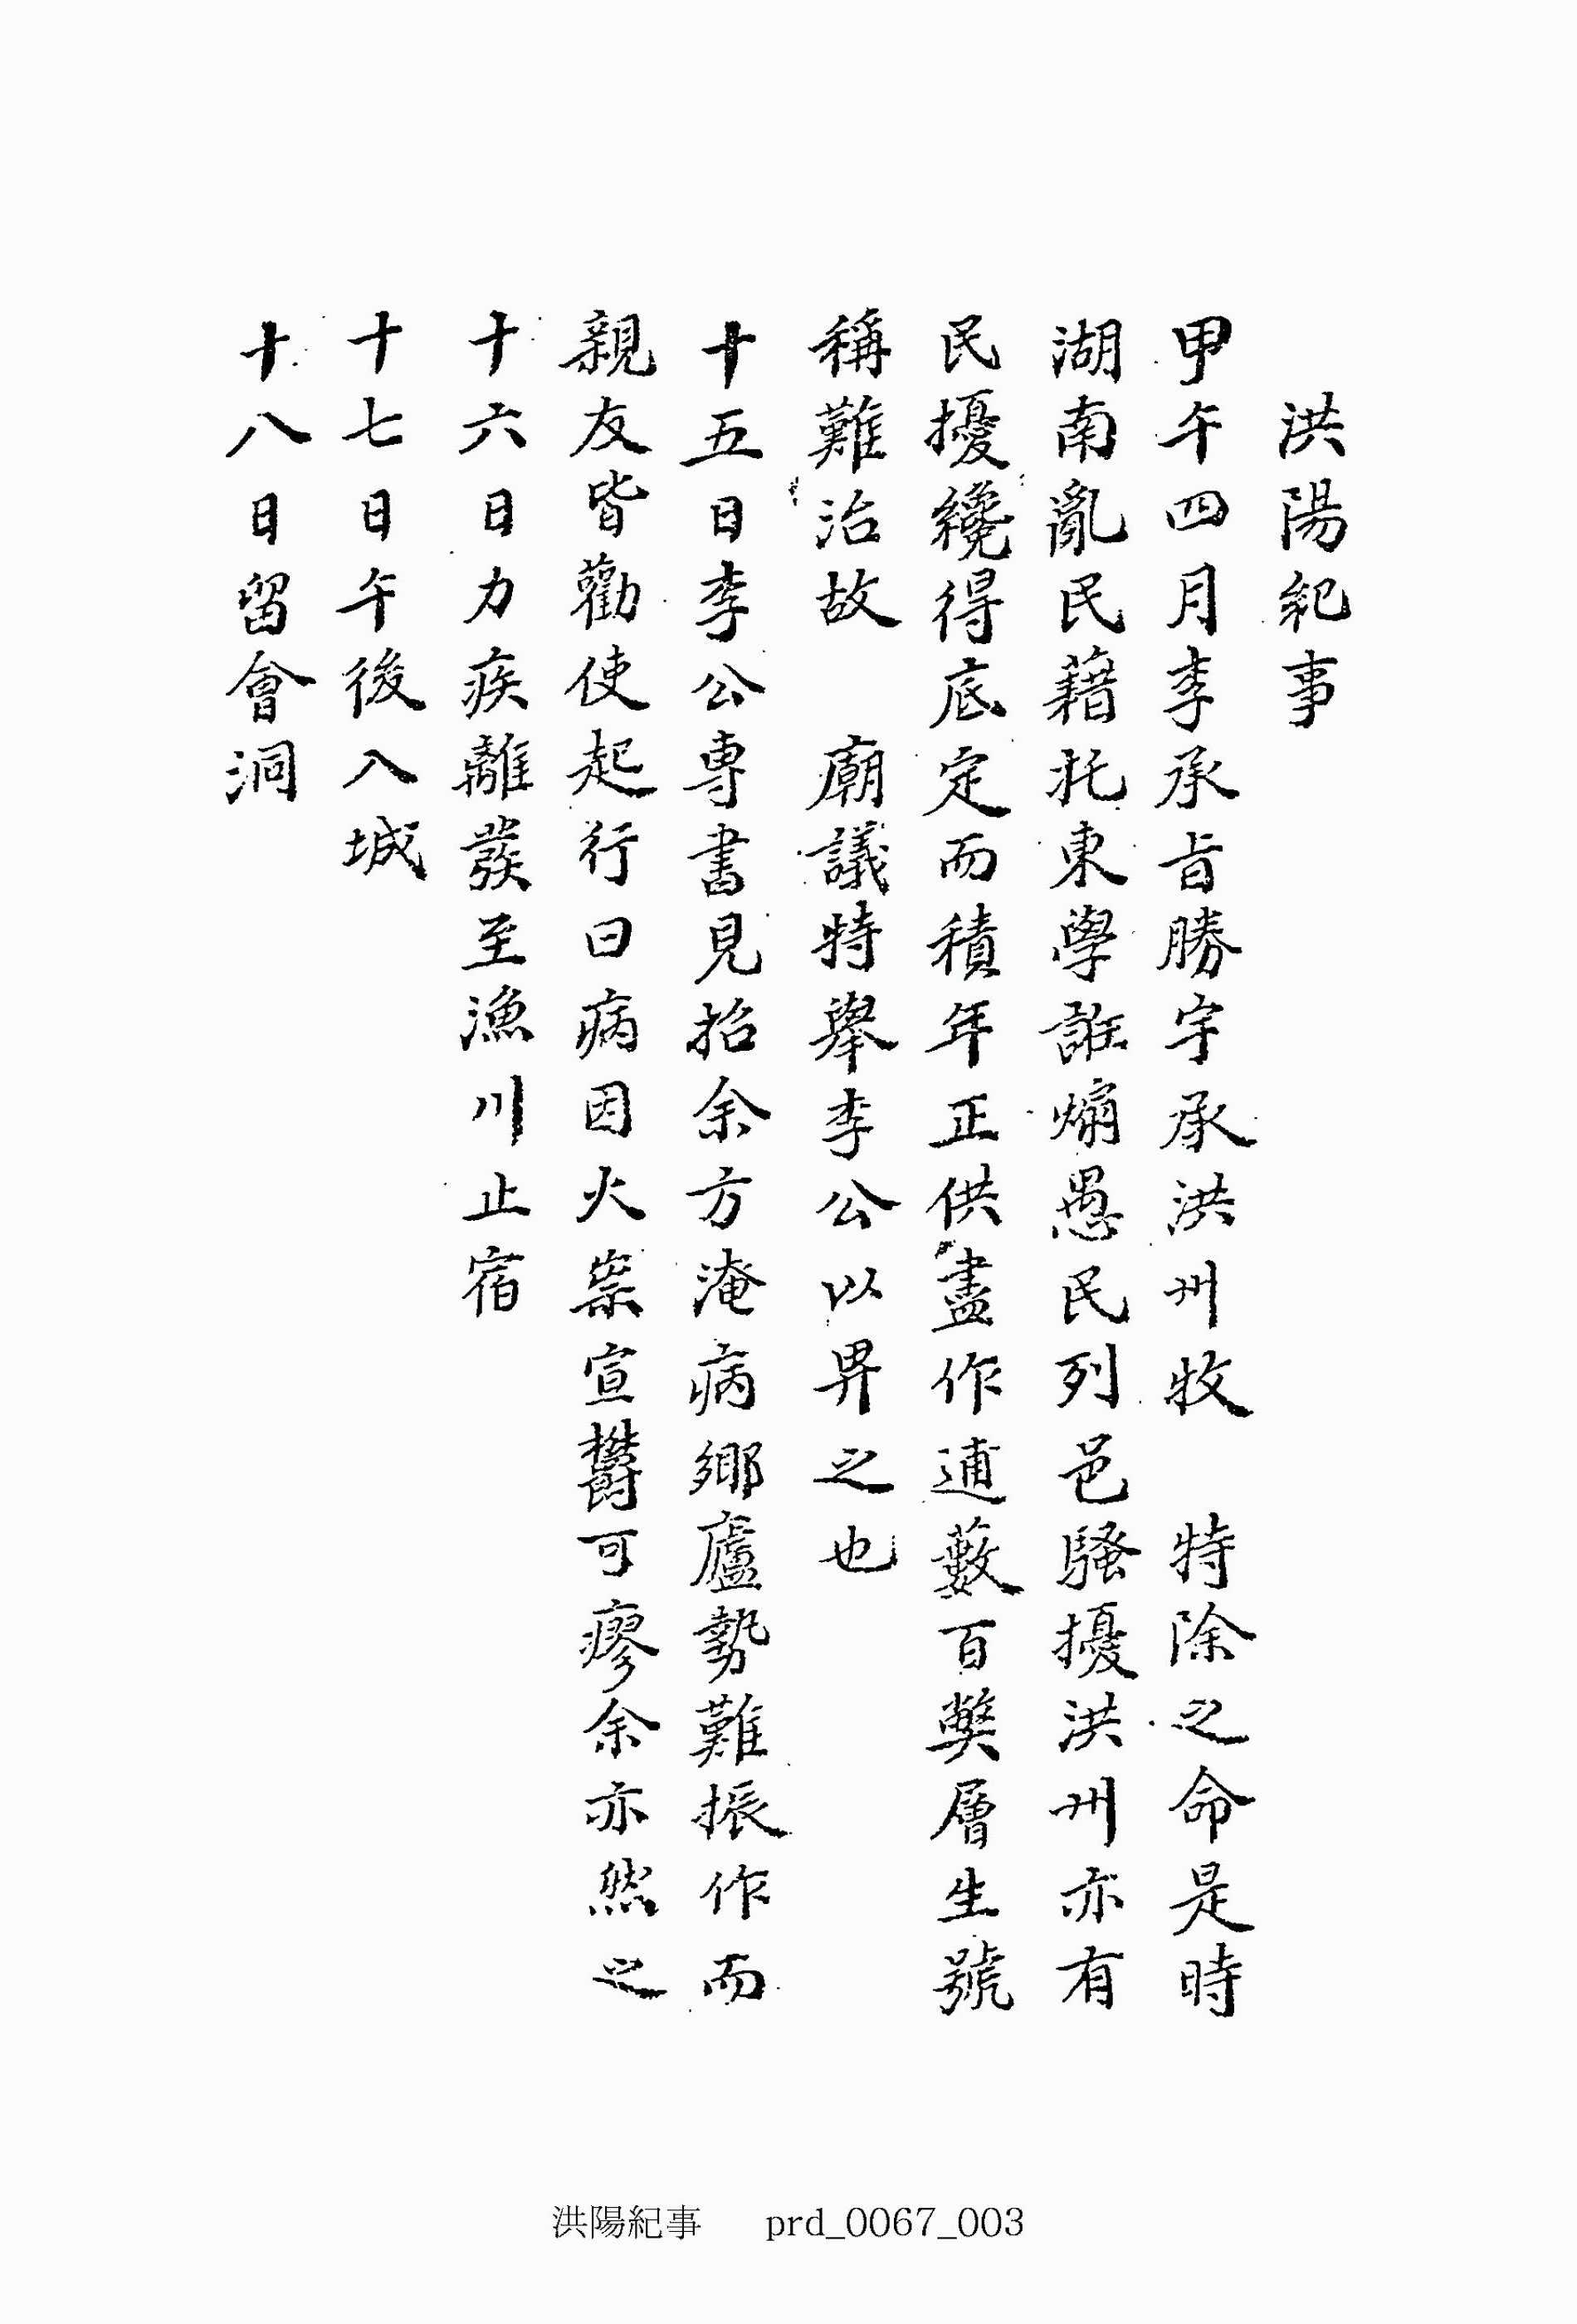 洪陽紀事
甲午四月李承旨勝宇承洪州牧　特除之命是時
湖南亂民藉托東學誑煽愚民列邑騷擾洪州亦有
民擾纔得底定而積年正供盡作逋藪百弊層生號
稱難治故　廟議特擧李公以畀之也
十五日李公專書見招余方淹病鄕廬勢難振作而
親友皆勸使起行曰病因火祟宣鬱可瘳余亦然之
十六日力疾離發至漁川止宿
十七日午後入城
十八日留會洞
洪陽紀事 prd_0067_003